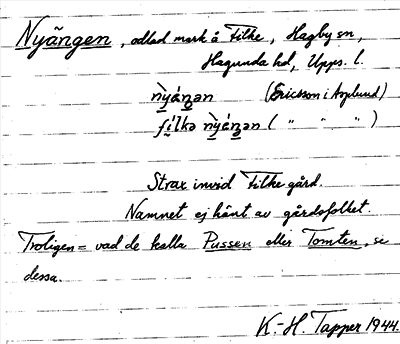 Nyängen, odlad mark å Filke, Hagby sn,
Hagunda hd, Upps. l.
(Ericsson i Asplund)
( " " " )
Strax invid Filke gård.
Namnet ej känt av gårdsfolket.
Troligen = vad de kalla Pussen eller Tomten, se
dessa.
K.-H. Tapper 1944.